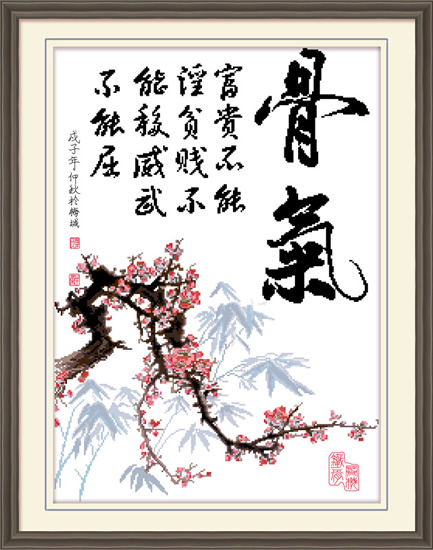 骨氣
富貴不能
淫貧贱不
能移威武
不能屈
戊子年仲秋於梅城